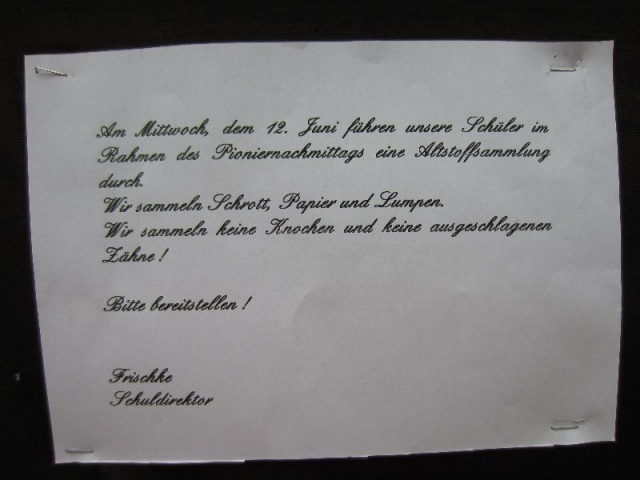 Am Mittwoch, dem 12. Juni führen unsere Schüler im
Rahmen des Pioniernachmittags eine Altstoffsammlung
durch.
Wir sammeln Schrott, Papier und Lumpen.
Wir sammeln keine Knochen und keine ausgeschlagenen
Zähne !
Bitte bereitstellen !
Frischke
Schuldirektor